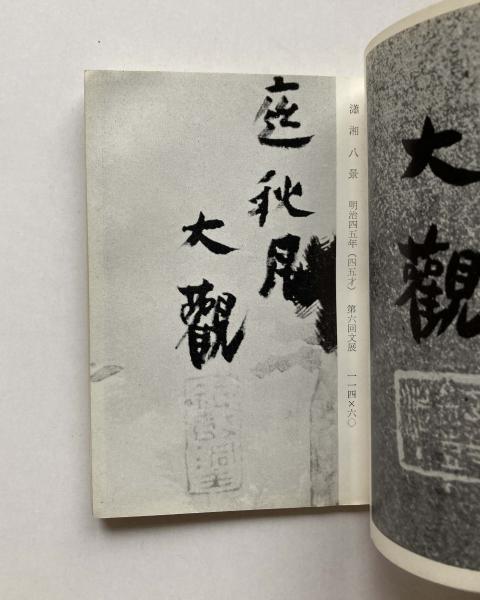 瀟湘八景　明治四五年（四五才）　第六回文展　一一四×六〇
庭秋月
大觀
大觀